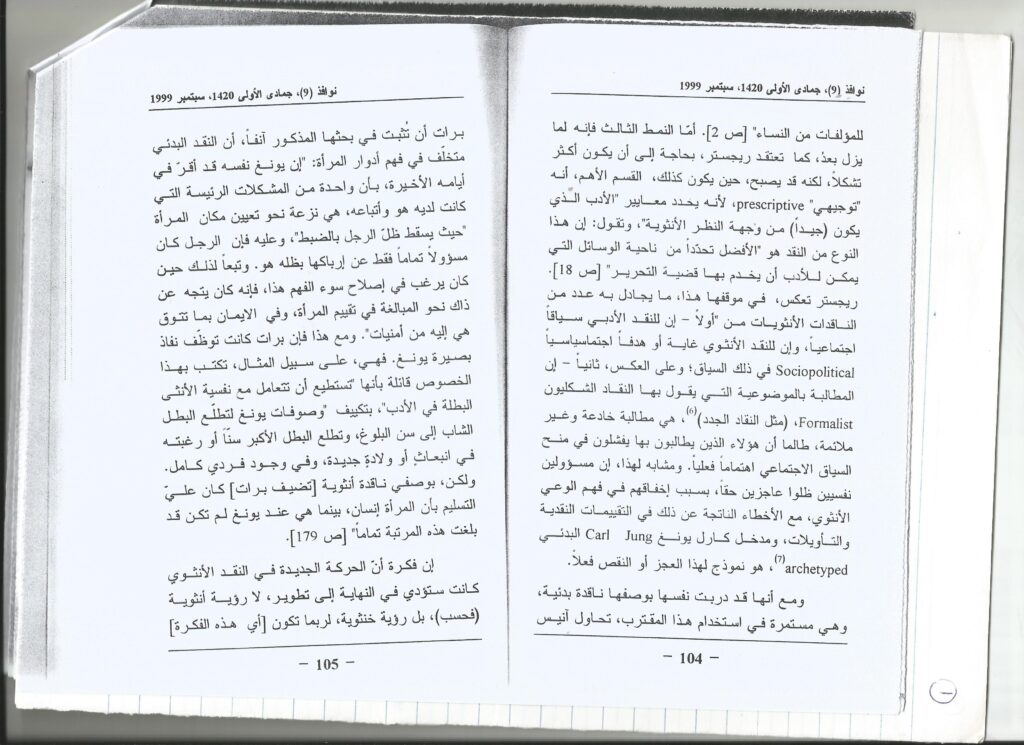 نوافذ (9)، جمادى الأولى 1420، سبتمبر 1999
للمؤلفات من النساء" [ص 2]. أمّا النمط الثالث فإنه لما
يزل بعدُ، كما تعتقد ريجستر، بحاجة إلى أن يكون أكثر
تشكلاً، لكنه قد يصبح، حين يكون كذلك، القسم الأهم، أنه
"توجيهي" prescriptive، لأنه يحدد معايير "الأدب الذي
يكون (جيداً) من وجهة النظر الأنثوية"، وتقول: إن هذا
النوع من النقد هو "الأفضل تحدّداً من ناحية الوسائل التي
يمكن للأدب أن يخدم بها قضية التحرير" [ص 18].
ريجستر تعكس، في موقفها هذا، ما يجادل به عدد من
الناقدات الأنثويات من "أولاً – إن للنقد الأدبي سياقاً
اجتماعياً، وإن للنقد الأنثوي غاية أو هدفاً اجتماسياسياً
Sociopolitical في ذلك السياق؛ وعلى العكس، ثانياً – إن
المطالبة بالموضوعية التي يقول بها النقاد الشكليون
Formalist، (مثل النقاد الجدد)(6)، هي مطالبة خادعة وغير
ملائمة، طالما أن هؤلاء الذين يطالبون بها يفشلون في منح
السياق الاجتماعي اهتماماً فعلياً. ومشابه لهذا، إن مسؤولين
نفسيين ظلوا عاجزين حقاً، بسبب إخفاقهم في فهم الوعي
الأنثوي، مع الأخطاء الناتجة عن ذلك في التقييمات النقدية
والتأويلات، ومدخل كارل يونغ Carl Jung البدئي
archetyped(7)، هو نموذج لهذا العجز أو النقص فعلاً.
ومع أنها قد دربت نفسها بوصفها ناقدة بدئية،
وهي مستمرة في استخدام هذا المقترب، تحاول آنيس
– 104 –
نوافذ (9)، جمادى الأولى 1420، سبتمبر 1999
برات أن تُثبت في بحثها المذكور آنفاً، أن النقد البدئي
متخلّف في فهم أدوار المرأة: "إن يونغ نفسه قد أقرّ في
أيامه الأخيرة، بأن واحدة من المشكلات الرئيسة التي
كانت لديه هو وأتباعه، هي نزعة نحو تعيين مكان المرأة
"حيث يسقط ظلّ الرجل بالضبط"، وعليه فإن الرجل كان
مسؤولاً تماماً فقط عن إرباكها بظله هو. وتبعاً لذلك حين
كان يرغب في إصلاح سوء الفهم هذا، فإنه كان يتجه عن
ذاك نحو المبالغة في تقييم المرأة، وفي الايمان بما تتوق
هي إليه من أمنيات". ومع هذا فإن برات كانت توظّف نفاذ
بصيرة يونغ. فهي، على سبيل المثال، تكتب بهذا
الخصوص قائلة بأنها "تستطيع أن تتعامل مع نفسية الأنثى
البطلة في الأدب"، بتكييف "وصوفات يونغ لتطلّع البطل
الشاب إلى سن البلوغ، وتطلع البطل الأكبر سنّاً أو رغبته
في انبعاثٍ أو ولادةٍ جديدة، وفي وجود فردي كامل.
ولكن، بوصفي ناقدة أنثوية [تضيف برات] كان عليّ
التسليم بأن المرأة إنسان، بينما هي عند يونغ لم تكن قد
بلغت هذه المرتبة تماماً" [ص 179].
إن فكرة أنّ الحركة الجديدة في النقد الأنثوي
كانت ستؤدي في النهاية إلى تطوير، لا رؤية أنثوية
(فحسب)، بل رؤية خنثوية، لربما تكون [أي هذه الفكرة]
– 105 –